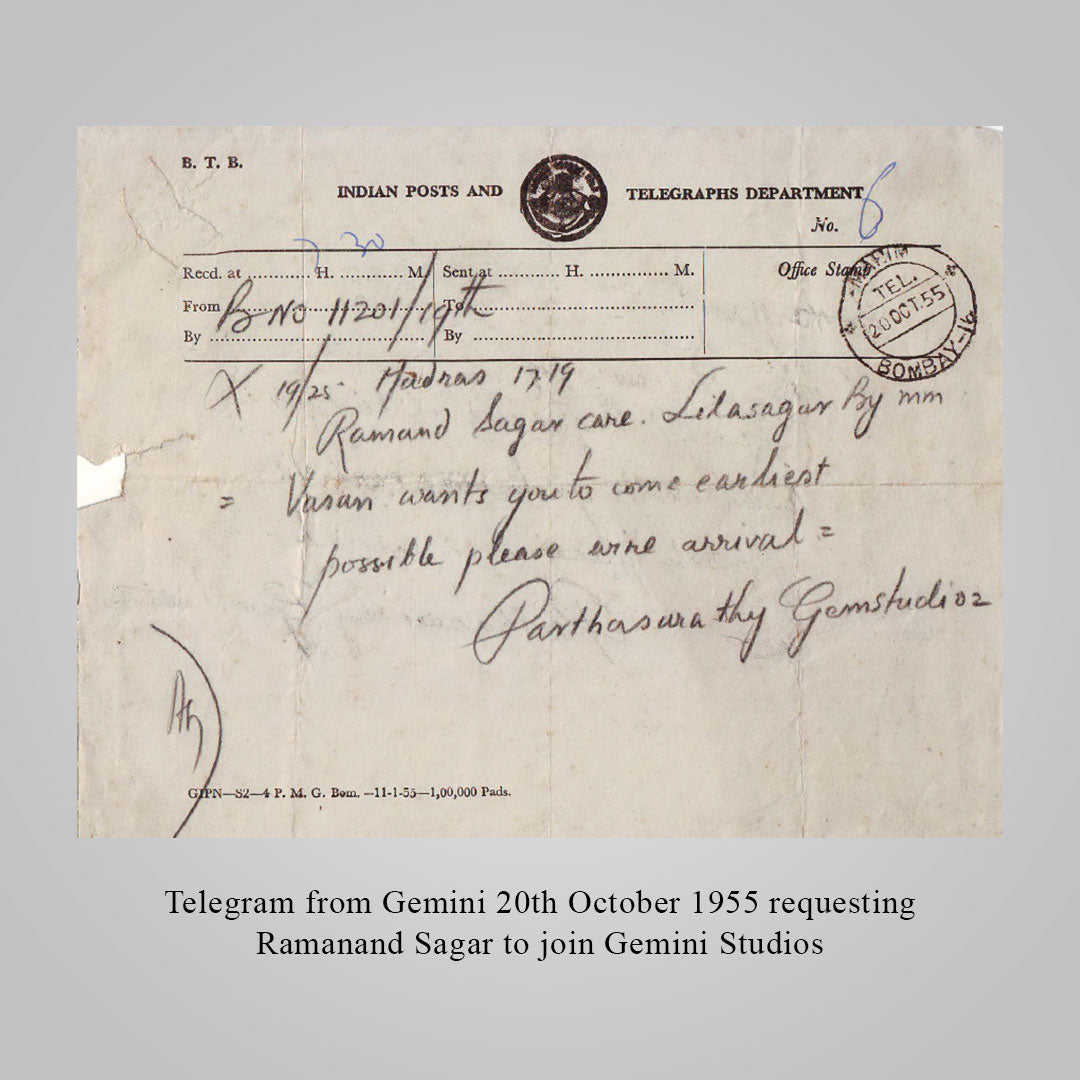 B. T. B.
INDIAN POSTS AND TELEGRAPHS DEPARTMENT
No. 6
7 30
Recd. at ............ H. ............ M. Sent at ............ H. ............... M. Office Stamp
From B NO 11201/19th To
By By
MAHIM
TEL.
20 OCT. 55
BOMBAY-16
X 19/25 Madras 17.19
Ramand Sagar care. Lilasagar By mm
= Vasan wants you to come earliest
possible please wire arrival =
Parthasarathy Gemstudioz
GIPN—S2—4 P. M. G. Bom. —11-1-55—1,00,000 Pads.
Telegram from Gemini 20th October 1955 requesting
Ramanand Sagar to join Gemini Studios